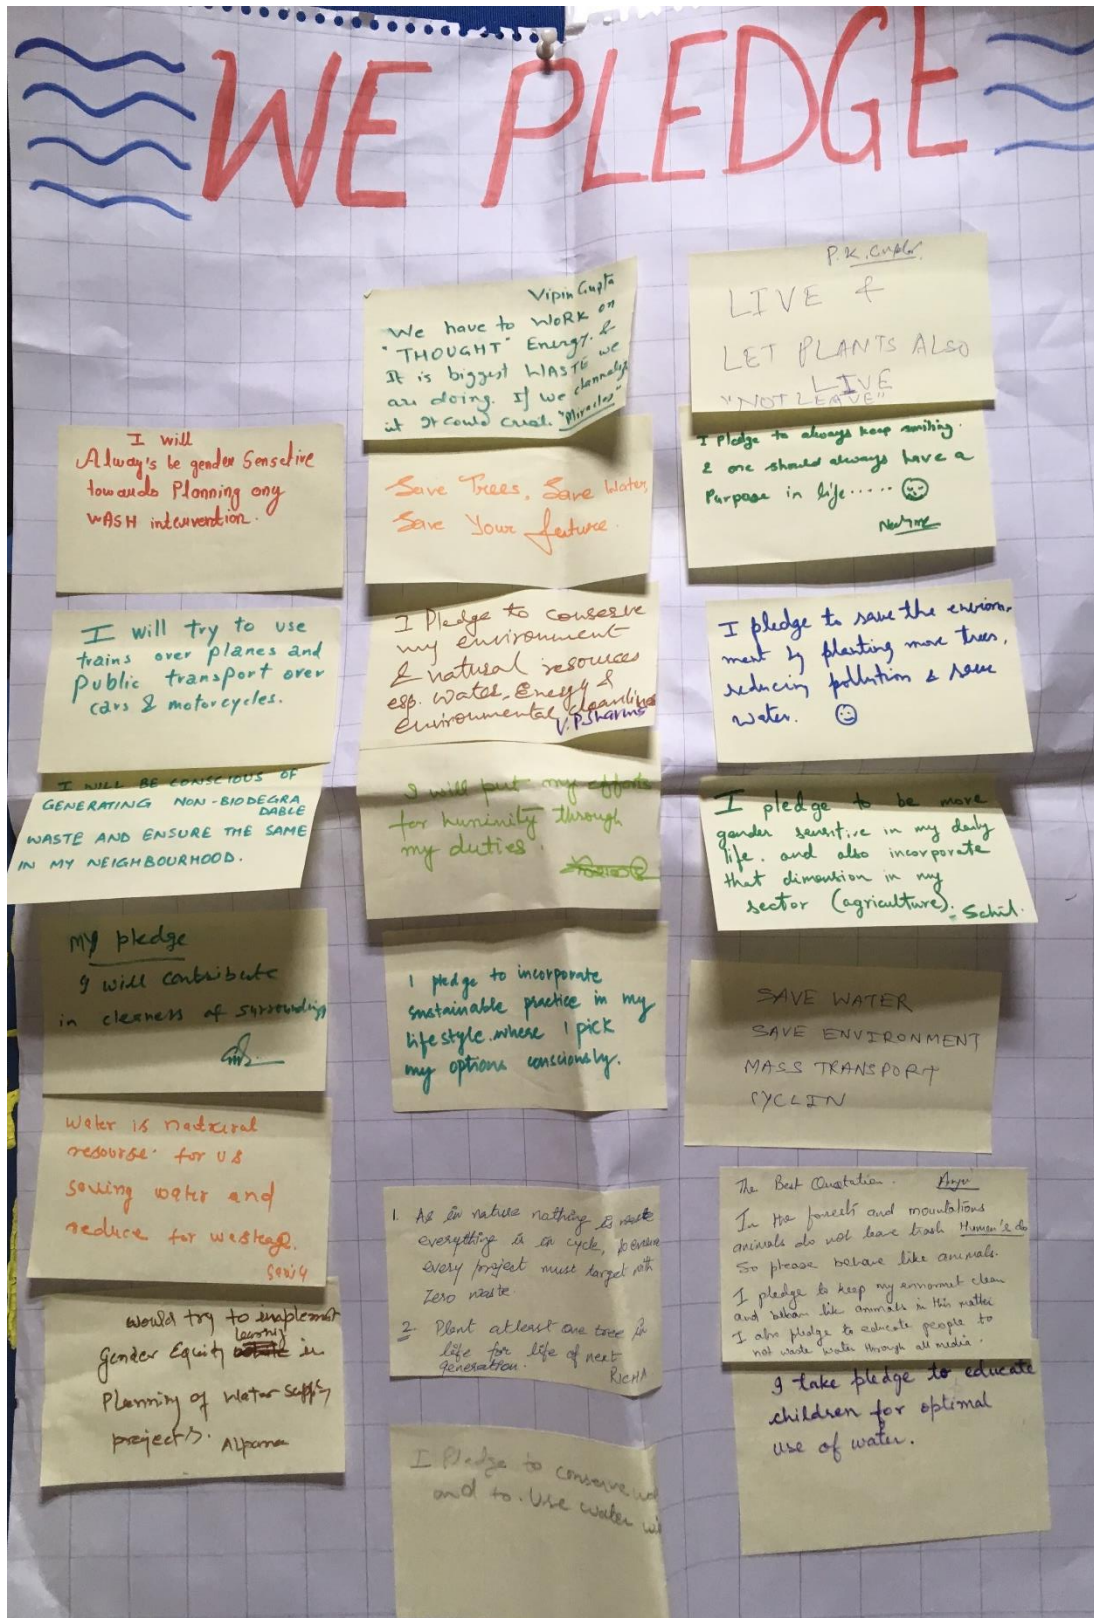 WE PLEDGE
I will
Always be gender Sensetive
towards Planning any
WASH intervention.
I will try to use
trains over planes and
Public transport over
cars & motorcycles.
I WILL BE CONSCIOUS OF
GENERATING NON-BIODEGRA
DABLE
WASTE AND ENSURE THE SAME
IN MY NEIGHBOURHOOD.
MY pledge
I will contribute
in cleaness of surroundings
Water is natural
resourse for us
saving water and
reduce for wastage.
would try to implement
learning
Gender Equity in
Planning of Water supply
projects. Alpana
Vipin Gupta
We have to WORK on
"THOUGHT" Energy. &
It is biggest WASTE we
are doing. If we channalise
it It could creat "Miracles"
Save Trees, Save Water,
Save Your future.
I Pledge to conserve
my environment
& natural resources
esp. water, Energy &
environmental cleanliness
V.P. Sharma
I will put my efforts
for huminity through
my duties.
I pledge to incorporate
sustainable practice in my
lifestyle where I pick
my options consciously.
1. As in nature nothing is waste
everything is in cycle, so ensure
every project must target with
Zero waste
2. Plant atleast one tree in
life for life of next
generation.
RICHA
I Pledge to conserve
and to Use water
P.K. Gupta
LIVE &
LET PLANTS ALSO
LIVE
"NOT LEAVE"
I Pledge to always keep smiling.
& one should always have a
Purpose in life.....
I pledge to save the environ-
ment by planting more trees,
reducing pollution & save
water.
I pledge to be more
gender sensitive in my daily
life. and also incorporate
that dimension in my
sector (agriculture).
SAVE WATER
SAVE ENVIRONMENT
MASS TRANSPORT
CYCLIN
The Best Quotation.
In the forests and mountations
animals do not leave trash Human's do
So please behave like animals.
I pledge to keep my clean
and behave like animals in this matter
I also pledge to educate people to
not waste water through all media.
I take pledge to educate
children for optimal
use of water.